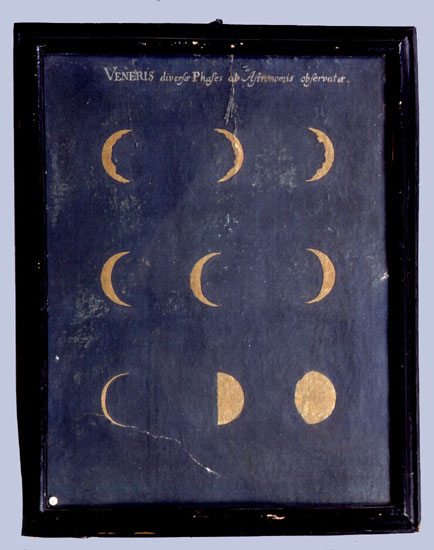 VENERIS diversæ Phases ab Astronomis observatæ.